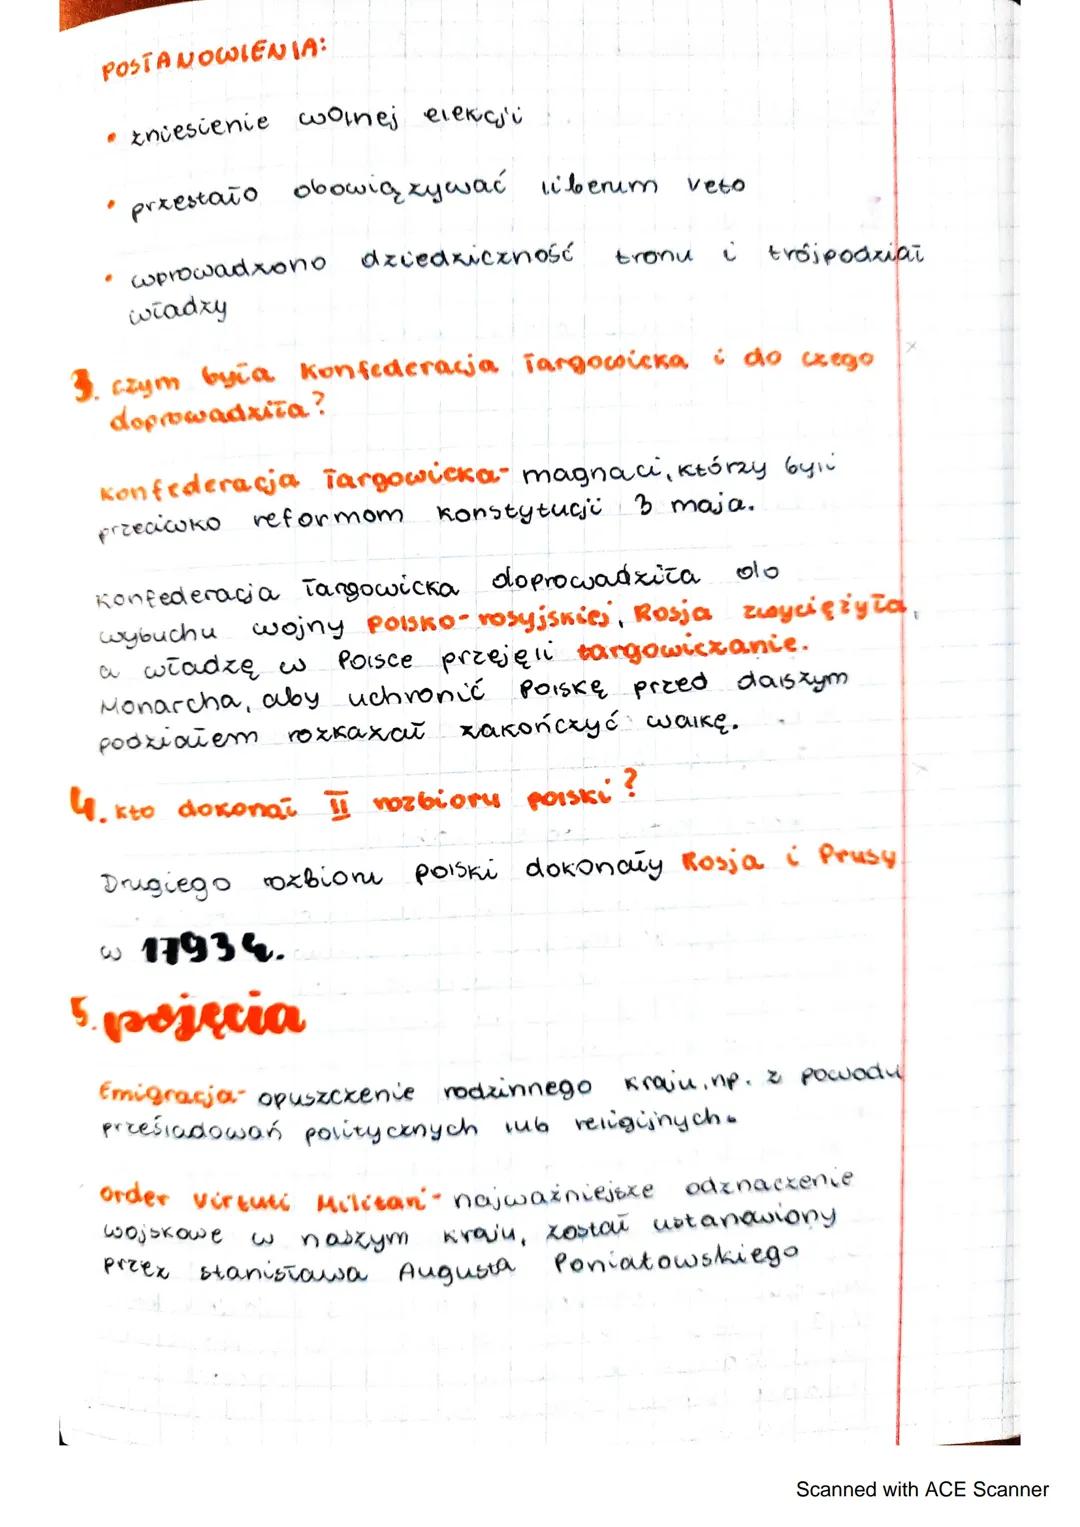 POSTANOWIENIA:
• zniesienie wolnej elekcji
• przestało obowiązywać liberum veto
• wprowadzono dziedziczność tronu i trójpodział
władzy
3. czym była Konfederacja Targowicka i do czego
doprowadziła?
Konfederacja Targowicka- magnaci, którzy byli
przeciwko reformom konstytucji 3 maja.
Konfederacja Targowicka doprowadziła do
wybuchu wojny polsko-rosyjskiej, Rosja zwyciężyła,
a władzę w Polsce przejęli targowiczanie.
Monarcha, aby uchronić Polskę przed dalszym
podziałem rozkazał zakończyć walkę.
4. kto dokonał II rozbioru polski?
Drugiego rozbioru polski dokonały Rosja i Prusy
w 1793 r.
5. pojęcia
Emigracja- opuszczenie rodzinnego kraju, np. z powodu
prześladowań politycznych lub religijnych.
Order Virtuti Militari- najważniejsze odznaczenie
wojskowe w naszym kraju, został ustanowiony
przez stanisława Augusta Poniatowskiego
Scanned with ACE Scanner